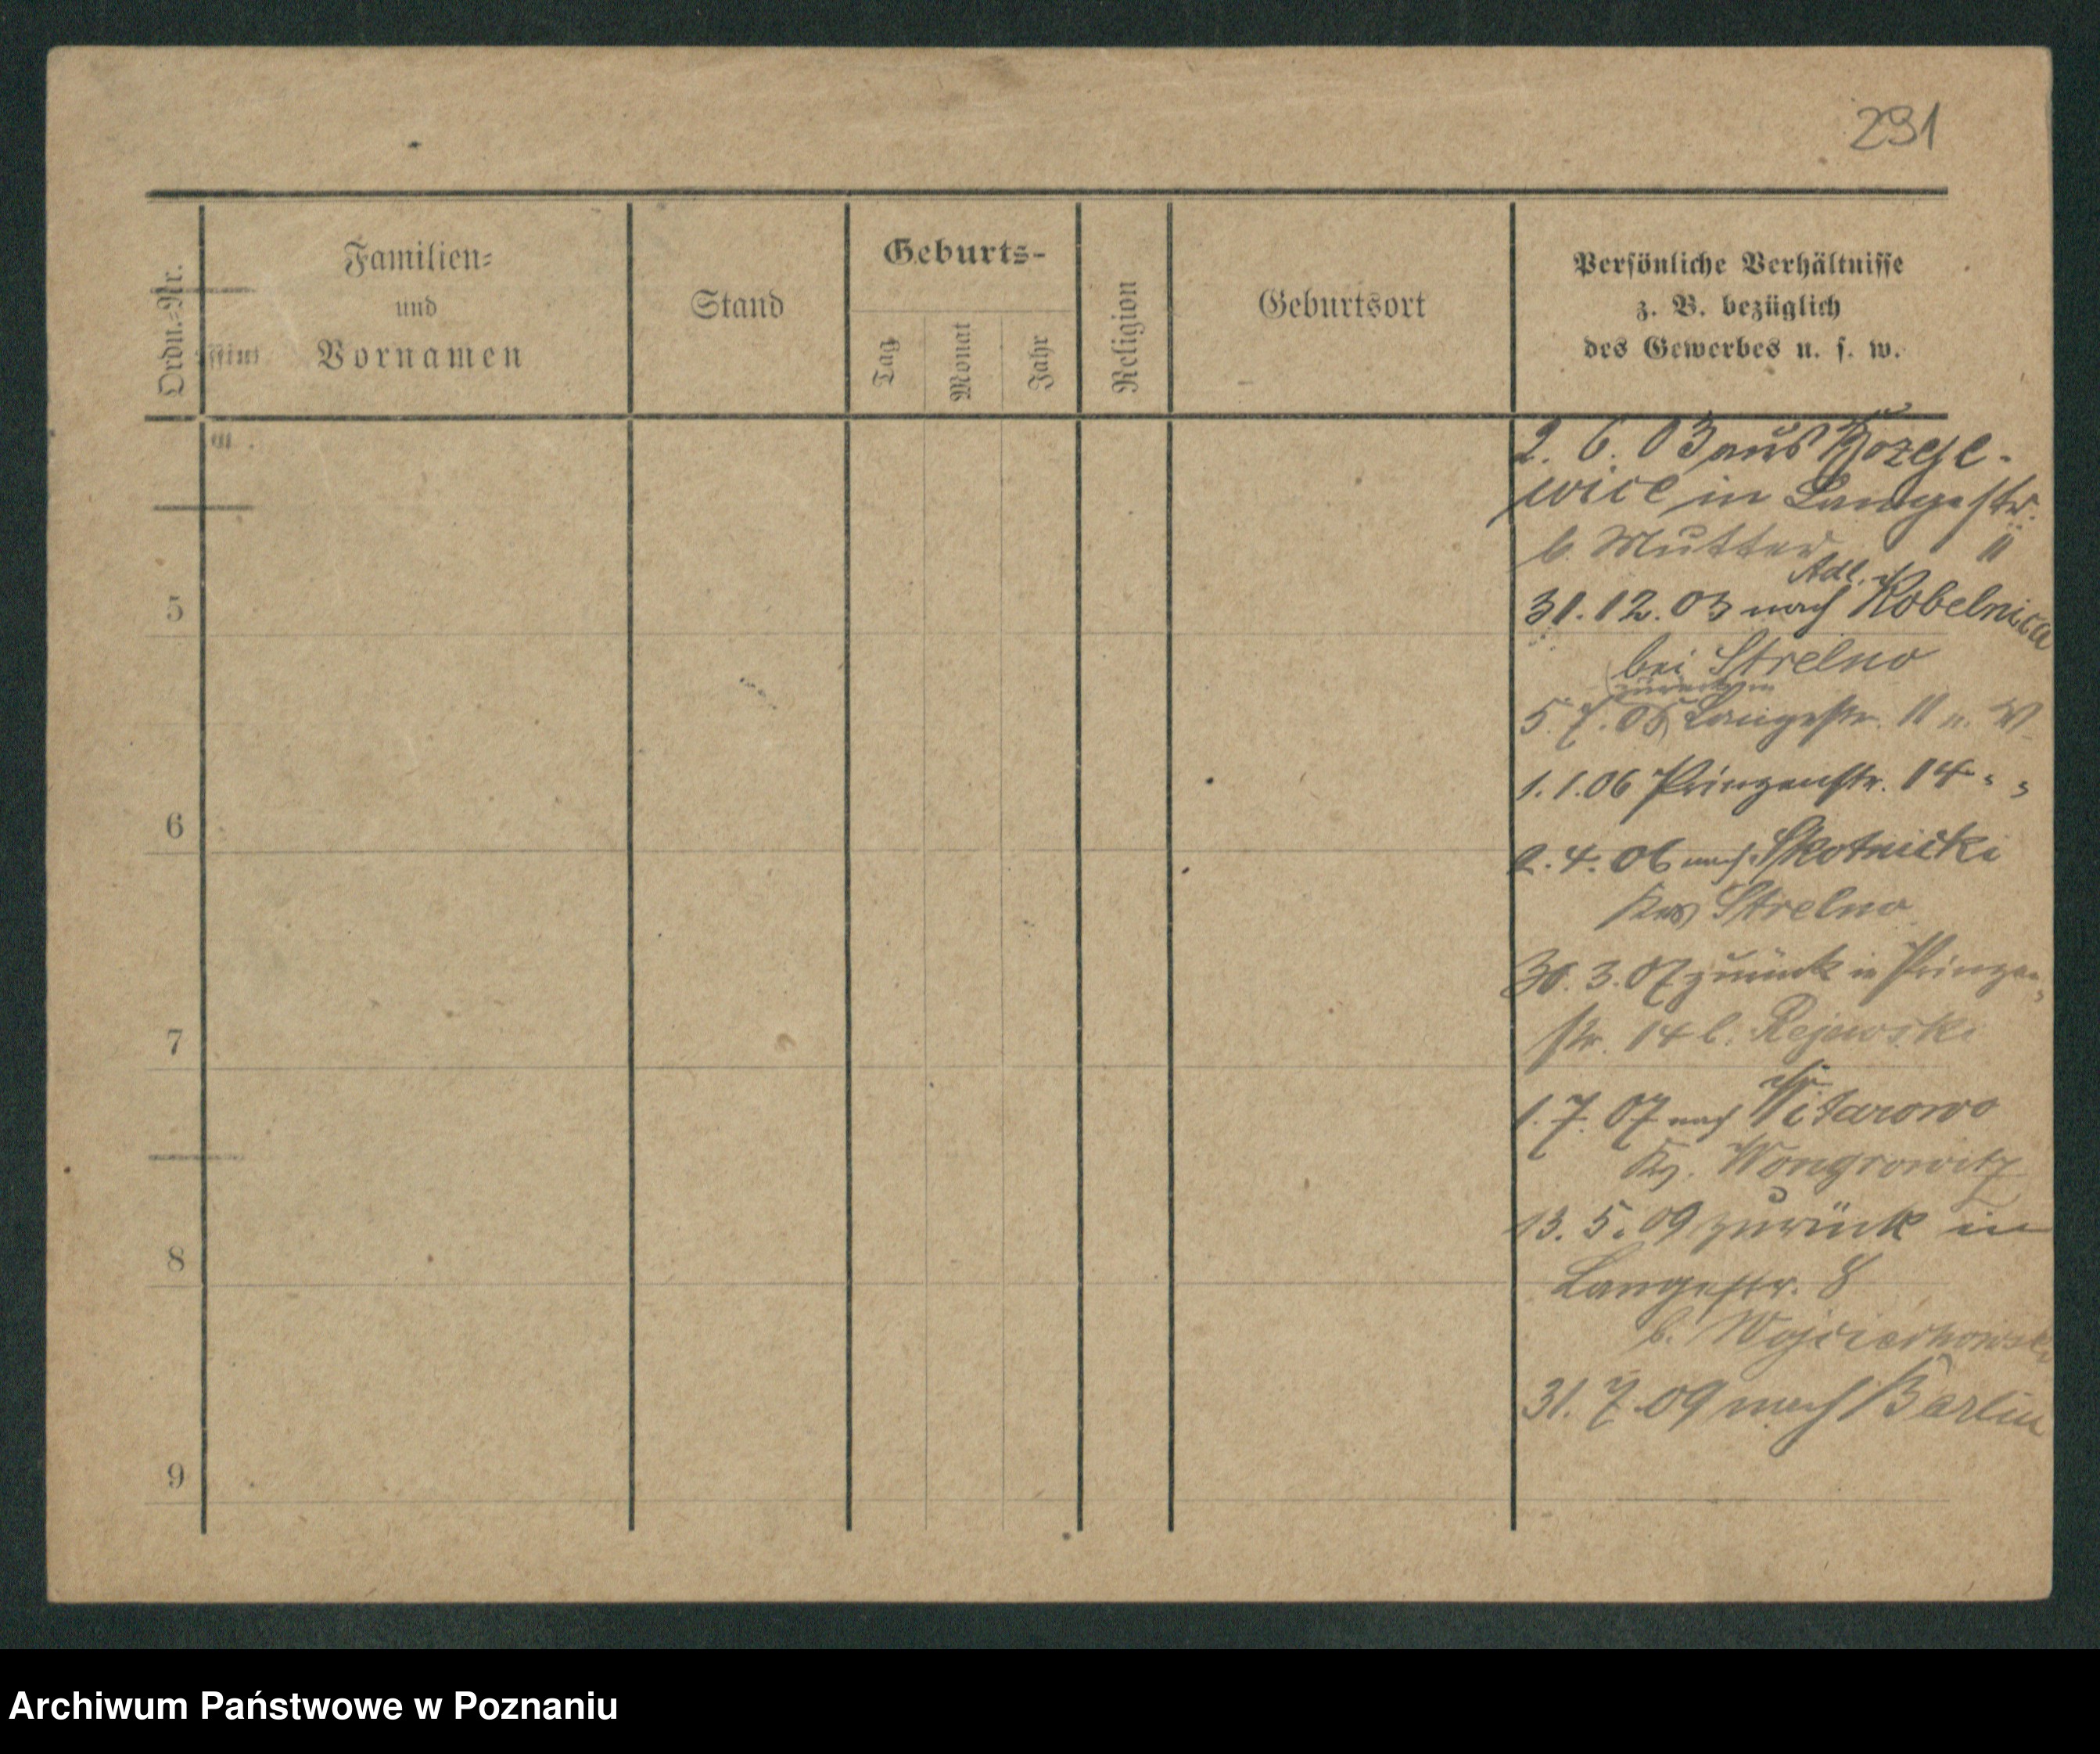 291
Ordn.=Nr.
Familien=
und
Vornamen
Stand
Geburts-
Tag
Monat
Jahr
Religion
Geburtsort
Persönliche Verhältnisse
z. B. bezüglich
des Gewerbes u. s. w.
2. 6. 03 aus
wice in Langestr.
b. Mutter 11
Adl.
31. 12. 03 nach Kobelnica
5
bei Strelno
zurück in
5. 7. 05 Langestr. 11 n. W
1. 1. 06 Prinzenstr. 14 " "
6
2. 4. 06 nach Skotnicki
Krs Strelno
30. 3. 07 zurück in Prinzen
7
str. 14 b. Rejewski
1. 7. 07 nach
Kr. Wongrowitz
13. 5. 09 zurück in
8
Langestr. 8
b. Wojciechowski
31. 7. 09 nach Berlin
9
Archiwum Państwowe w Poznaniu